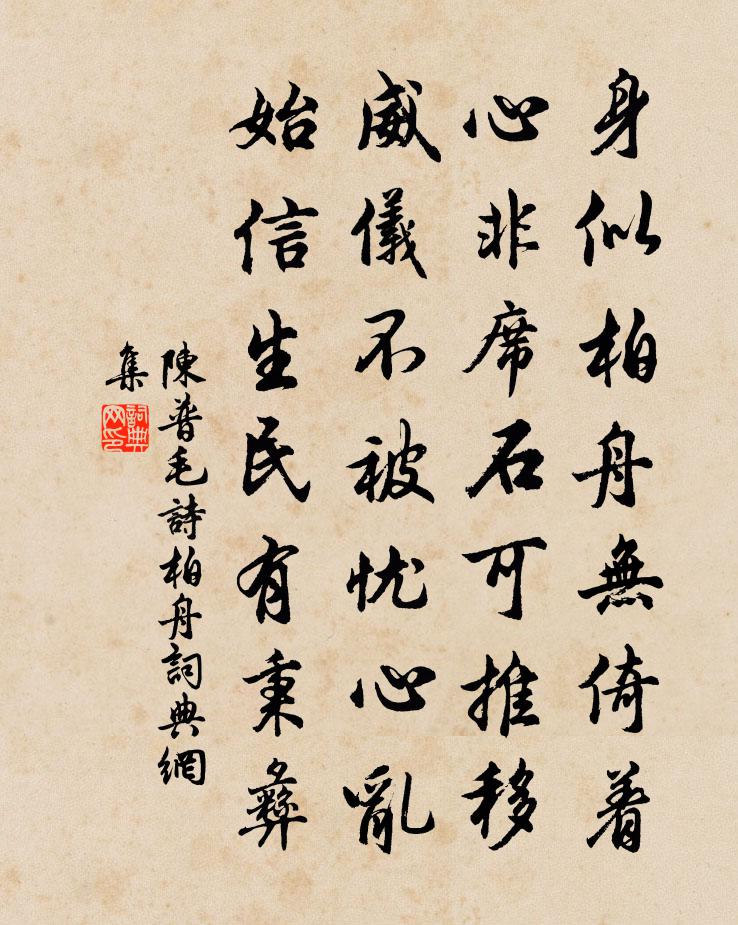 身似柏舟無倚着
心非席石可推移
威儀不被忧心亂
始信生民有秉彝
陳普毛詩柏舟詞典網
集
詞典
网印